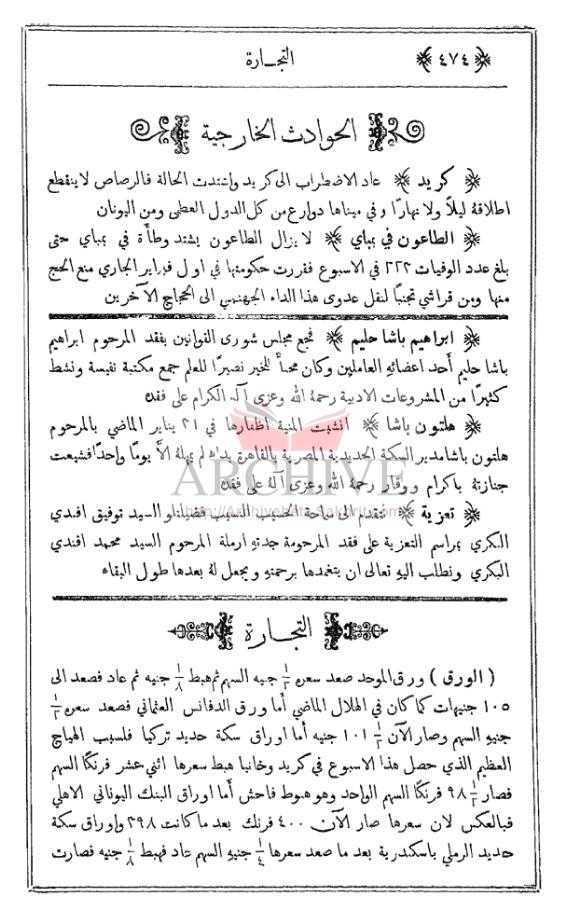 ﴿ ٤٧٤ ﴾
التجـارة
الحوادث الخارجية
﴿ كريد ﴾ عاد الاضطراب الى كريد واشتدت الحالة فالرصاص لا ينقطع
اطلاقهُ ليلاً ولا نهارًا وفي ميناها دوارع من كل الدول العظمى ومن اليونان
﴿ الطاعون في بمباي ﴾ لا يزال الطاعون يشتد وطأة في بمباي حتى
بلغ عدد الوفيات ٢٢٣ في الاسبوع فقررت حكومتها في اول فبراير الجاري منع الحج
منها ومن قراشي تجنبًا لنقل عدوى هذا الداء الجهنمي الى الحجاج الآخرين
﴿ ابراهيم باشا حليم ﴾ فجع مجلس شورى القوانين بفقد المرحوم ابراهيم
باشا حليم أحد اعضائهِ العاملين وكان محبًّا للخير نصيرًا للعلم جمع مكتبة نفيسة ونشط
كثيرًا من المشروعات الادبية رحمهُ الله وعزى آله الكرام على فقده
﴿ هلتون باشا ﴾ انشبت المنية اظفارها في ٢١ يناير الماضي بالمرحوم
هلتون باشا مدير السكة الحديدية المصرية بالقاهرة بداء لم يمهلهُ الاَّ يومًا واحدًا فشيعت
جنازتهُ باكرام ووقار رحمهُ الله وعزى آلهُ على فقده
ARCHIVE
﴿ تعزية ﴾ نتقدم الى سماحة الحسيب النسيب فضيلتلو السيد توفيق افندي
البكري بمراسم التعزية على فقد المرحومة جدتهِ ارملة المرحوم السيد محمد افندي
البكري ونطلب اليهِ تعالى ان يتغمدها برحمتهِ ويجعل لهُ بعدها طول البقاء
التجـارة
( الورق ) ورق الموحد صعد سعره ½ جنيه السهم ثم هبط ⅛ جنيه ثم عاد فصعد الى
١٠٥ جنيهات كما كان في الهلال الماضي أما ورق الدفانس العثماني فصعد سعره ½
جنيهِ السهم وصار الآن ½ ١٠١ جنيه أما اوراق سكة حديد تركيا فلسبب الهياج
العظيم الذي حصل هذا الاسبوع في كريد وخانيا هبط سعرها اثني عشر فرنكًا السهم
فصار ½ ٩٨ فرنكًا السهم الواحد وهو هبوط فاحش أما اوراق البنك اليوناني الاهلي
فبالعكس لان سعرها صار الآن ٤٠٠ فرنك بعد ما كانت ٢٩٨ واوراق سكة
حديد الرملي باسكندرية بعد ما صعد سعرها ¼ جنيهِ السهم عاد فهبط ⅛ جنيه فصارت